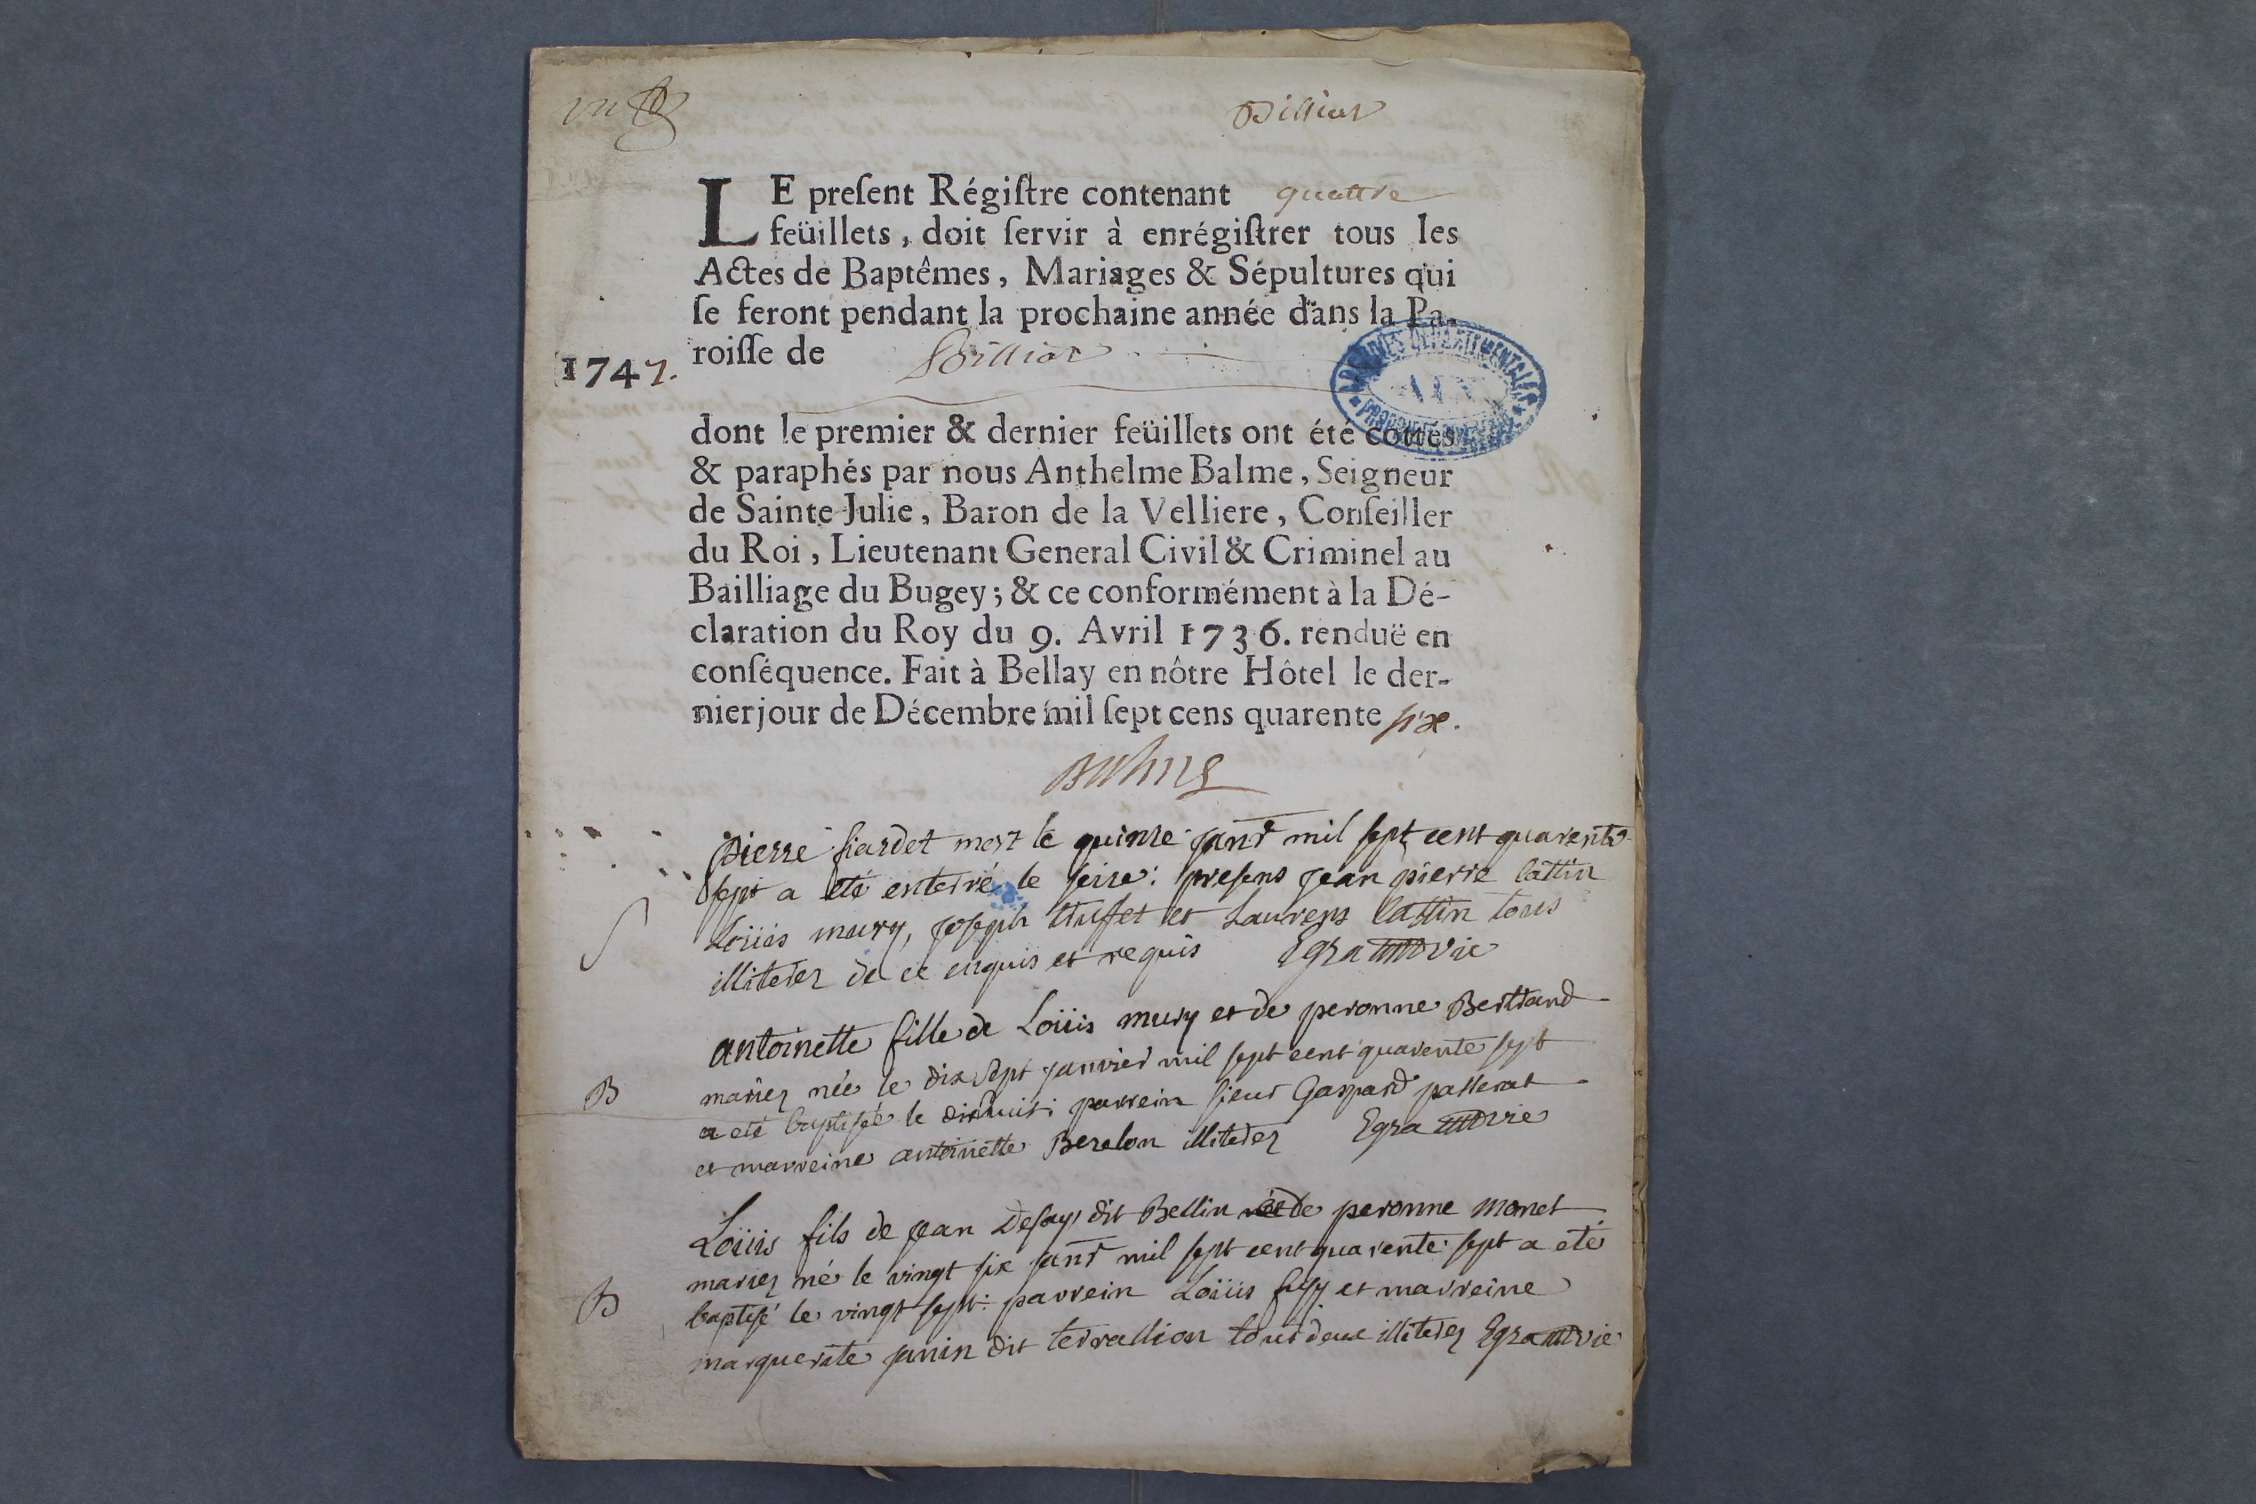 Billiat
LE preſent Régiſtre contenant quattre
feüillets, doit ſervir à enrégiſtrer tous les
Actes de Baptêmes, Mariages & Sépultures qui
ſe feront pendant la prochaine année dans la Pa-
roiſſe de Billiat
1747.
ARCHIVES DEPARTEMENTALES
AIN
dont le premier & dernier feüillets ont été cottés
& paraphés par nous Anthelme Balme, Seigneur
de Sainte Julie, Baron de la Velliere, Conſeiller
du Roi, Lieutenant General Civil & Criminel au
Bailliage du Bugey; & ce conformément à la Dé-
claration du Roy du 9. Avril 1736. renduë en
conſéquence. Fait à Bellay en nôtre Hôtel le der-
nier jour de Décembre mil ſept cens quarente six.
Balme
pierre fiardet mort le quinze janr mil sept cent quarente
sept a eté enterré le seize: presens jean pierre lattin
S
Loüis mury, joseph truffet et Laurens lattin tous
illiterez de ce enquis et requis
antoinette fille de Loüis mury et de peronne Bertrand
B
mariez née le dix sept janvier mil sept cent quarente sept
a eté baptisée le dixhuit: parrein sieur Gaspard passerat
et marreine antoinette Berelon illiterez
Loüis fils de jean Desay dit Bellin et de peronne monet
mariez né le vingt six janr mil sept cent quarente sept a eté
B
baptisé le vingt sept: parrein Loüis et marreine
marguerite janin dit terrallion tous deux illiterez